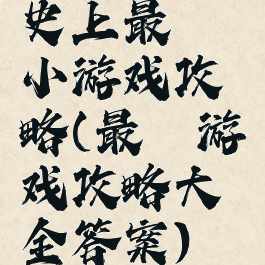 史上最
小游戏攻
略(最 游
戏攻略大
全答案)